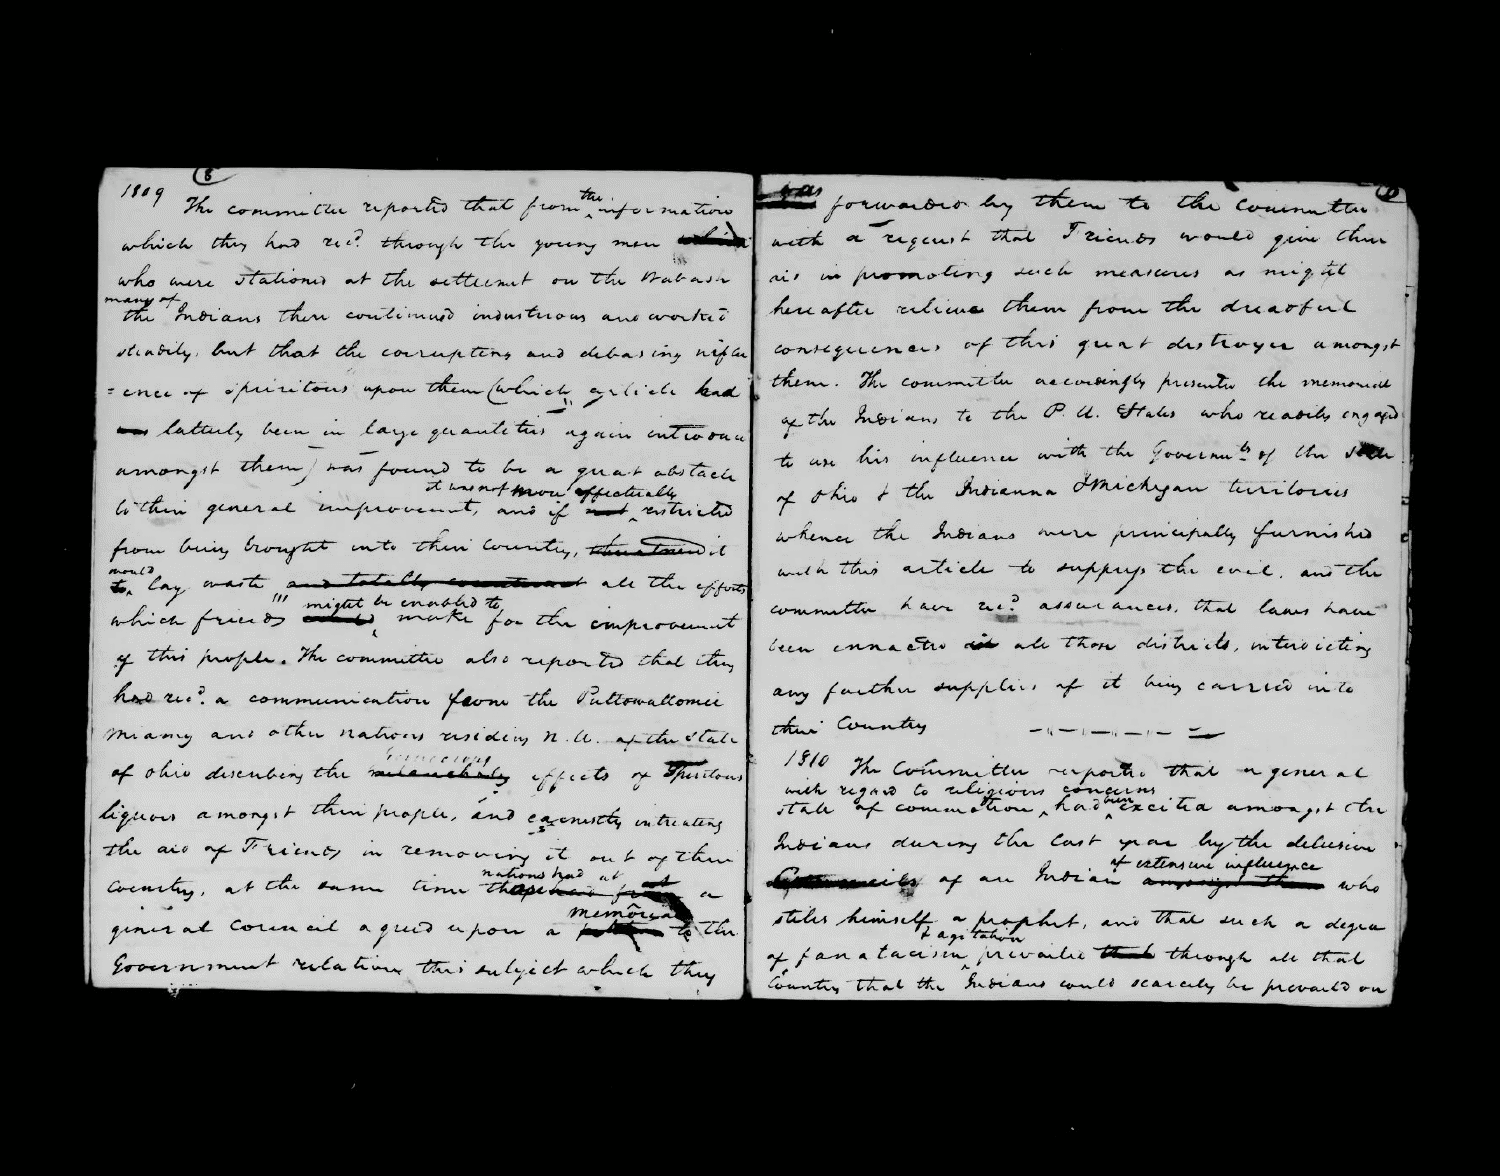 8
1809 The committee reported that from the information
which they had rec.d through the young men which
who were stationed at the settlement on the Wabash
many of
the Indians there continued industerous and worked
steadily, but that the corrupting and debasing influ
=ence of spiritous upon them (which article had
latterly been in large quantities again introduce
amongst them) was found to be a great obstacle
it was not more effectually
to their general improvement, and if not restricted
from being brought into their Country, it
would
to lay waste and totally counteract all the efforts
might be enabled to
which friends make for the improvement
of this people. The committee also reported that they
had rec.d a communication from the Puttowattomie
Miamy and other nations residing N.W. of the State
of Ohio describing the melancholy effects of Spiritous
liquors amongst their people, and earnestly intreating
the aid of Friends in removing it out of their
nations had at
country, at the same time a
memorial
general Council agreed upon a to the
Government relative this subject which they
was forwarded by them to the committee
with a request that Friends would give their
aid in promoting such measures as might
hereafter relieve them from the dreadful
consequences of this great destroyer amongst
them. The committee accordingly presented the memorial
of the Indians to the P. U. States who readily engaged
to use his influence with the Governm.ts of the State
of Ohio & the Indianna & Michigan territories
whence the Indians were principally furnished
with this article to suppress the evil, and the
committee have rec.d assurances, that laws have
been ennacted in all those districts, interdicting
any further supplies of it being carried into
their Country
1810 The Committee reported that a general
with regard to religious concerns
state of commotion had been excited amongst the
Indians during the last year by the delusive
of extensive influence
of an Indian amongst them who
stiles himself a prophet, and that such a degree
& agitation
of fanatacism prevailed that through all that
Country that the Indians could scarcely be prevailed on